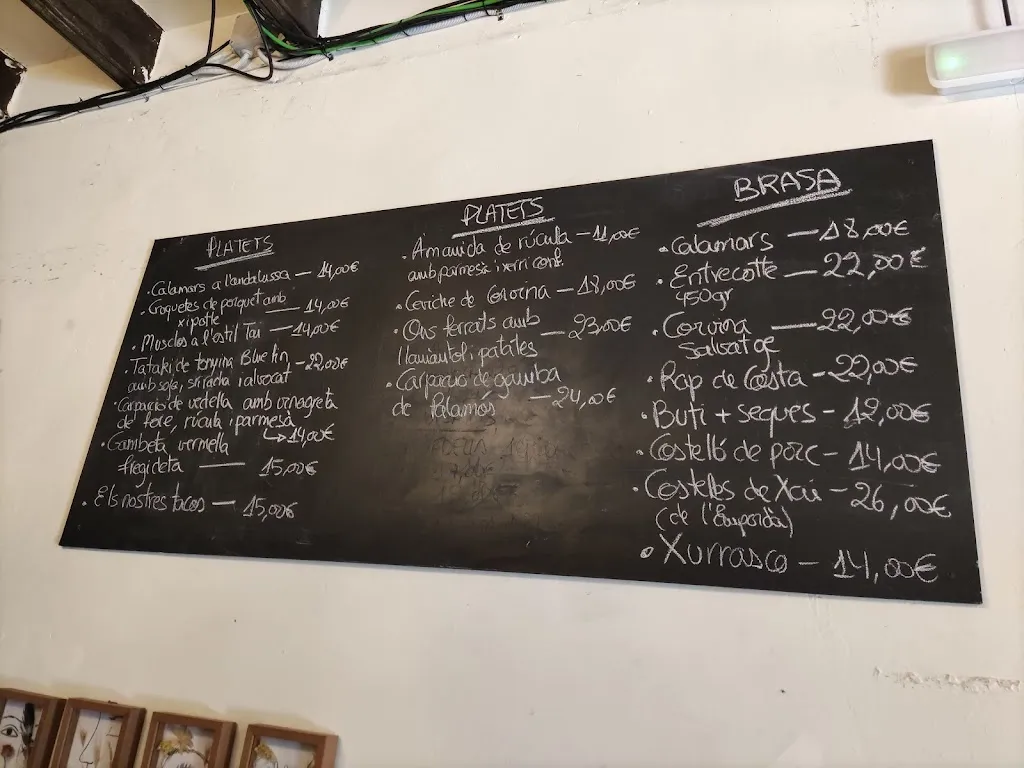 PLATETS
. Calamars a l'andalussa — 14,00€
. Croquetes de porquet amb — 14,00€
xipotle
. Musclos a l'estil Tai — 14,00€
. Tataki de tonyina Blue fin — 22,00€
amb soja, siracha i alvocat
. Carpaccio de vedella amb vinagreta
de fore, rúcula i parmesà
↳ 14,00€
. Gambeta vermella
fregideta — 15,00€
. Els nostres tacos — 15,00€
PLATETS
. Amanida de rúcula — 11,00€
amb parmesà i xerri conf.
. Ceviche de Corvina — 18,00€
. Ous ferrats amb — 23,00€
llamàntol i patates
. Carpaccio de gamba
de Palamós — 24,00€
BRASA
. Calamars — 18,00€
. Entrecotte — 22,00€
450gr
. Corvina — 22,00€
Salvatge
. Rap de Costa — 22,00€
. Buti + seques — 12,00€
. Costelló de porc — 14,00€
. Costelles de Xai — 26,00€
(de l'Empordà)
. Xurrasco — 14,00€